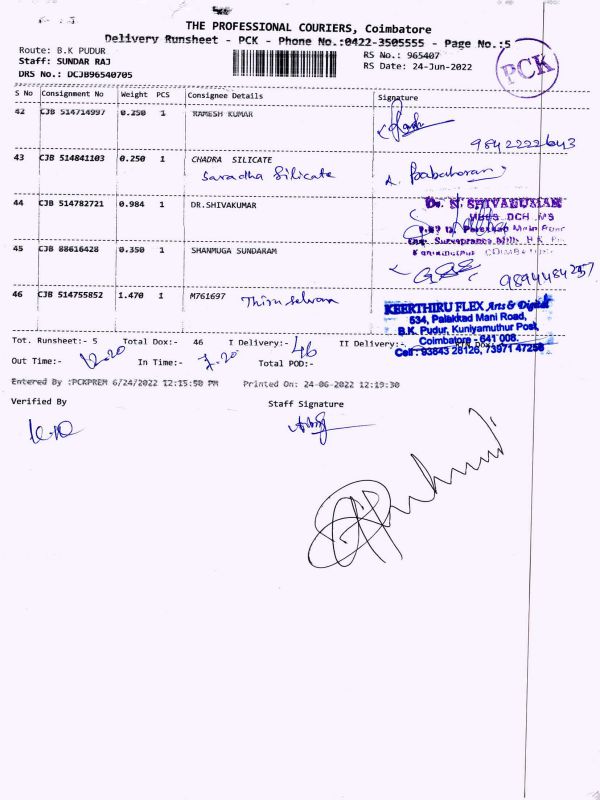 THE PROFESSIONAL COURIERS, Coimbatore
Delivery Runsheet - PCK - Phone No.:0422-3505555 - Page No.:5
Route: B.K PUDUR
Staff: SUNDAR RAJ
DRS No.: DCJB96540705
RS No.: 965407
RS Date: 24-Jun-2022
PCK
S No Consignment No Weight PCS Consignee Details Signature
42 CJB 514714997 0.250 1 RAMESH KUMAR
9842222643
43 CJB 514841103 0.250 1 CHADRA SILICATE
Saradha Silicate
44 CJB 514782721 0.984 1 DR.SHIVAKUMAR
Dr. N. SHIVAKUMAR
MBBS DCH MS
45 CJB 88616428 0.350 1 SHANMUGA SUNDARAM
46 CJB 514755852 1.470 1 M761697 Thiru selvan
KEERTHIRU FLEX Arts & Digital
534, Palakkad Mani Road,
B.K. Pudur, Kuniyamuthur Post,
Coimbatore - 641 008.
Cell : 93643 26126, 73971 47256
Tot. Runsheet:- 5 Total Dox:- 46 I Delivery:- 46 II Delivery:-
Out Time:- 12.20 In Time:- 7.20 Total POD:-
Entered By :PCKPREM 6/24/2022 12:15:50 PM Printed On: 24-06-2022 12:19:30
Verified By Staff Signature